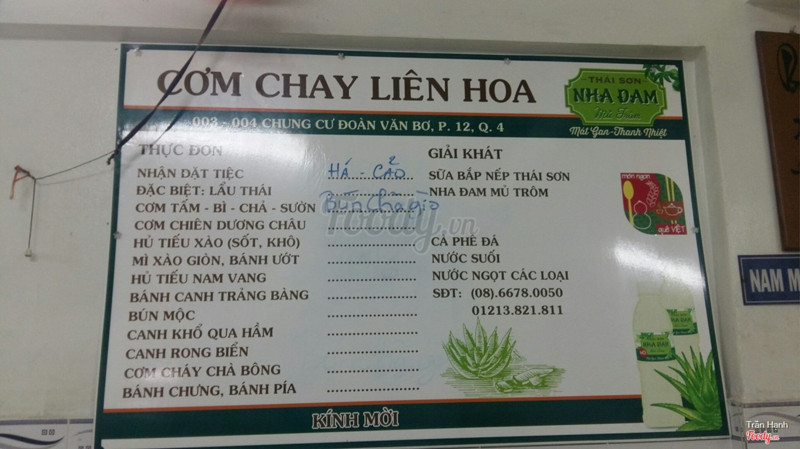 CƠM CHAY LIÊN HOA
003 - 004 CHUNG CƯ ĐOÀN VĂN BƠ, P. 12, Q. 4
THÁI SƠN
NHA ĐAM
Mủ Trôm
Mát Gan-Thanh Nhiệt
THỰC ĐƠN
NHẬN ĐẶT TIỆC
ĐẶC BIỆT: LẨU THÁI
CƠM TẤM - BÌ - CHẢ - SƯỜN
CƠM CHIÊN DƯƠNG CHÂU
HỦ TIẾU XÀO (SỐT, KHÔ)
MÌ XÀO GIÒN, BÁNH ƯỚT
HỦ TIẾU NAM VANG
BÁNH CANH TRẢNG BÀNG
BÚN MỘC
CANH KHỔ QUA HẦM
CANH RONG BIỂN
CƠM CHÁY CHÀ BÔNG
BÁNH CHƯNG, BÁNH PÍA
HÁ - CẢO
Bún Chả giò
GIẢI KHÁT
SỮA BẮP NẾP THÁI SƠN
NHA ĐAM MỦ TRÔM
CÀ PHÊ ĐÁ
NƯỚC SUỐI
NƯỚC NGỌT CÁC LOẠI
SĐT: (08).6678.0050
01213.821.811
món ngon
quê VIỆT
NHA ĐAM
KÍNH MỜI
NAM M
Foody.vn
Trần Hạnh
Foody.vn